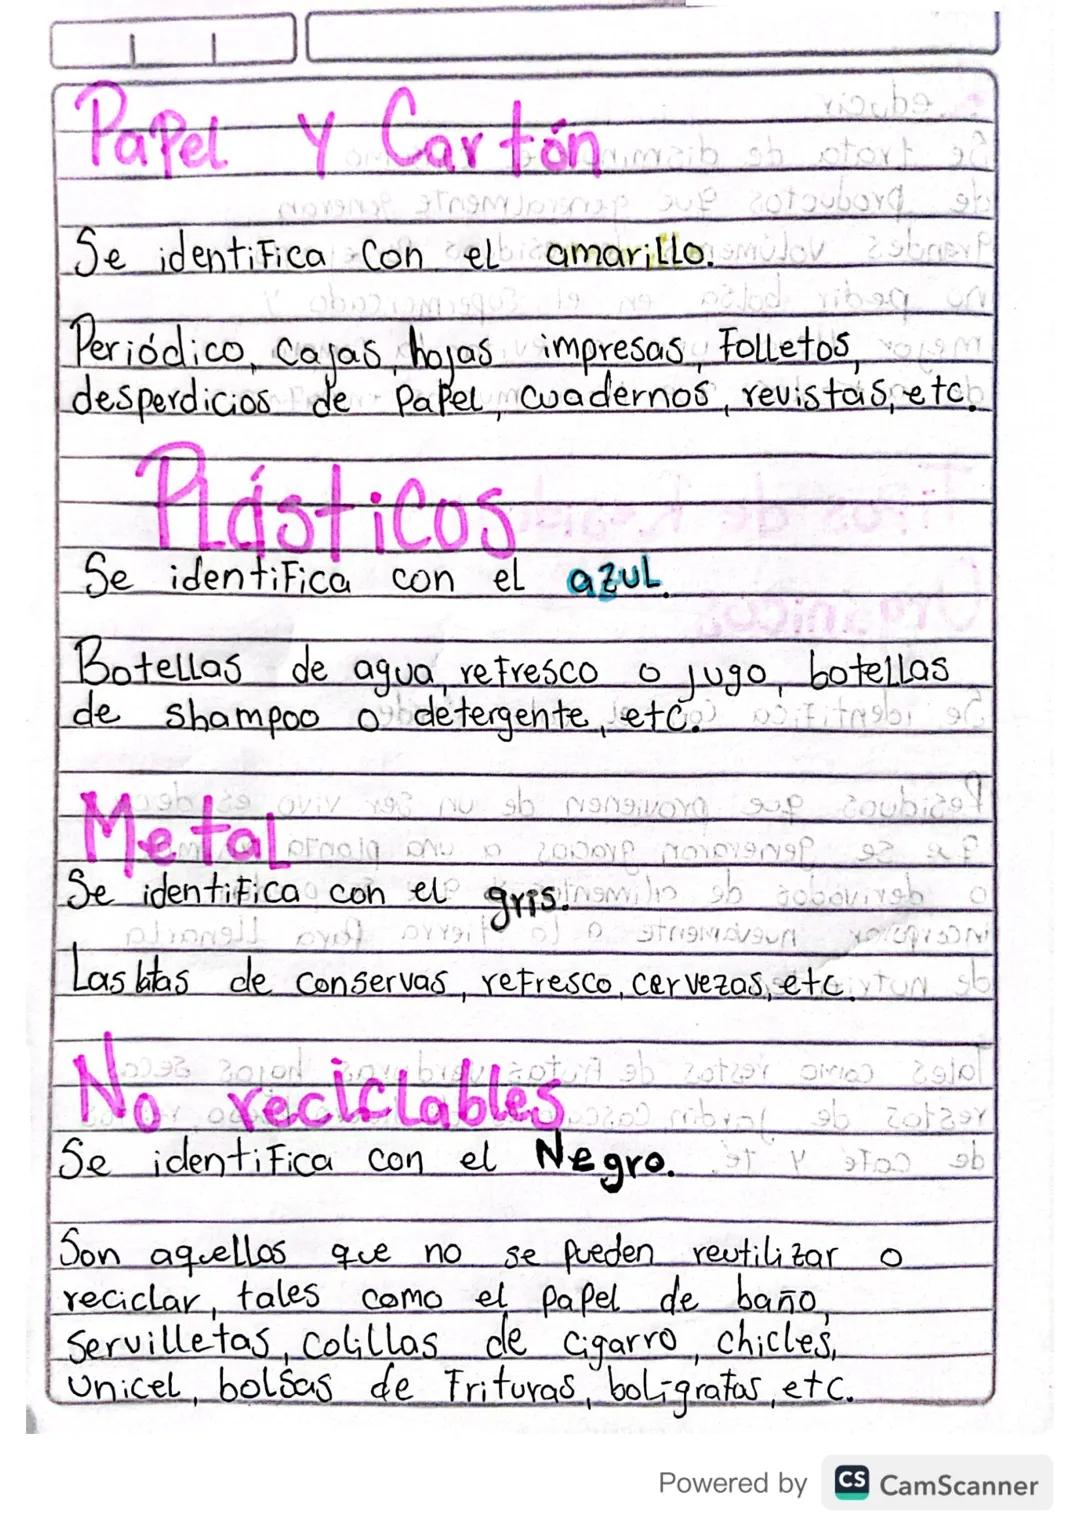 Papel y Cartón
Se identifica con el amarillo.
Periódico, cajas, hojas impresas, Folletos,
desperdicios de papel, cuadernos, revistas, etc.
Plásticos
Se identifica con el azul.
Botellas de agua, refresco o jugo, botellas
de shampoo o detergente, etc.
Metal
Se identifica con el gris.
Las latas de conservas, refresco, cervezas, etc.
No reciclables
Se identifica con el Negro.
Son aquellos que no se pueden reutilizar o
reciclar, tales como el papel de baño,
Servilletas, colillas de cigarro, chicles,
Unicel, bolsas de Frituras, boligrafos, etc.
Powered by CS CamScanner